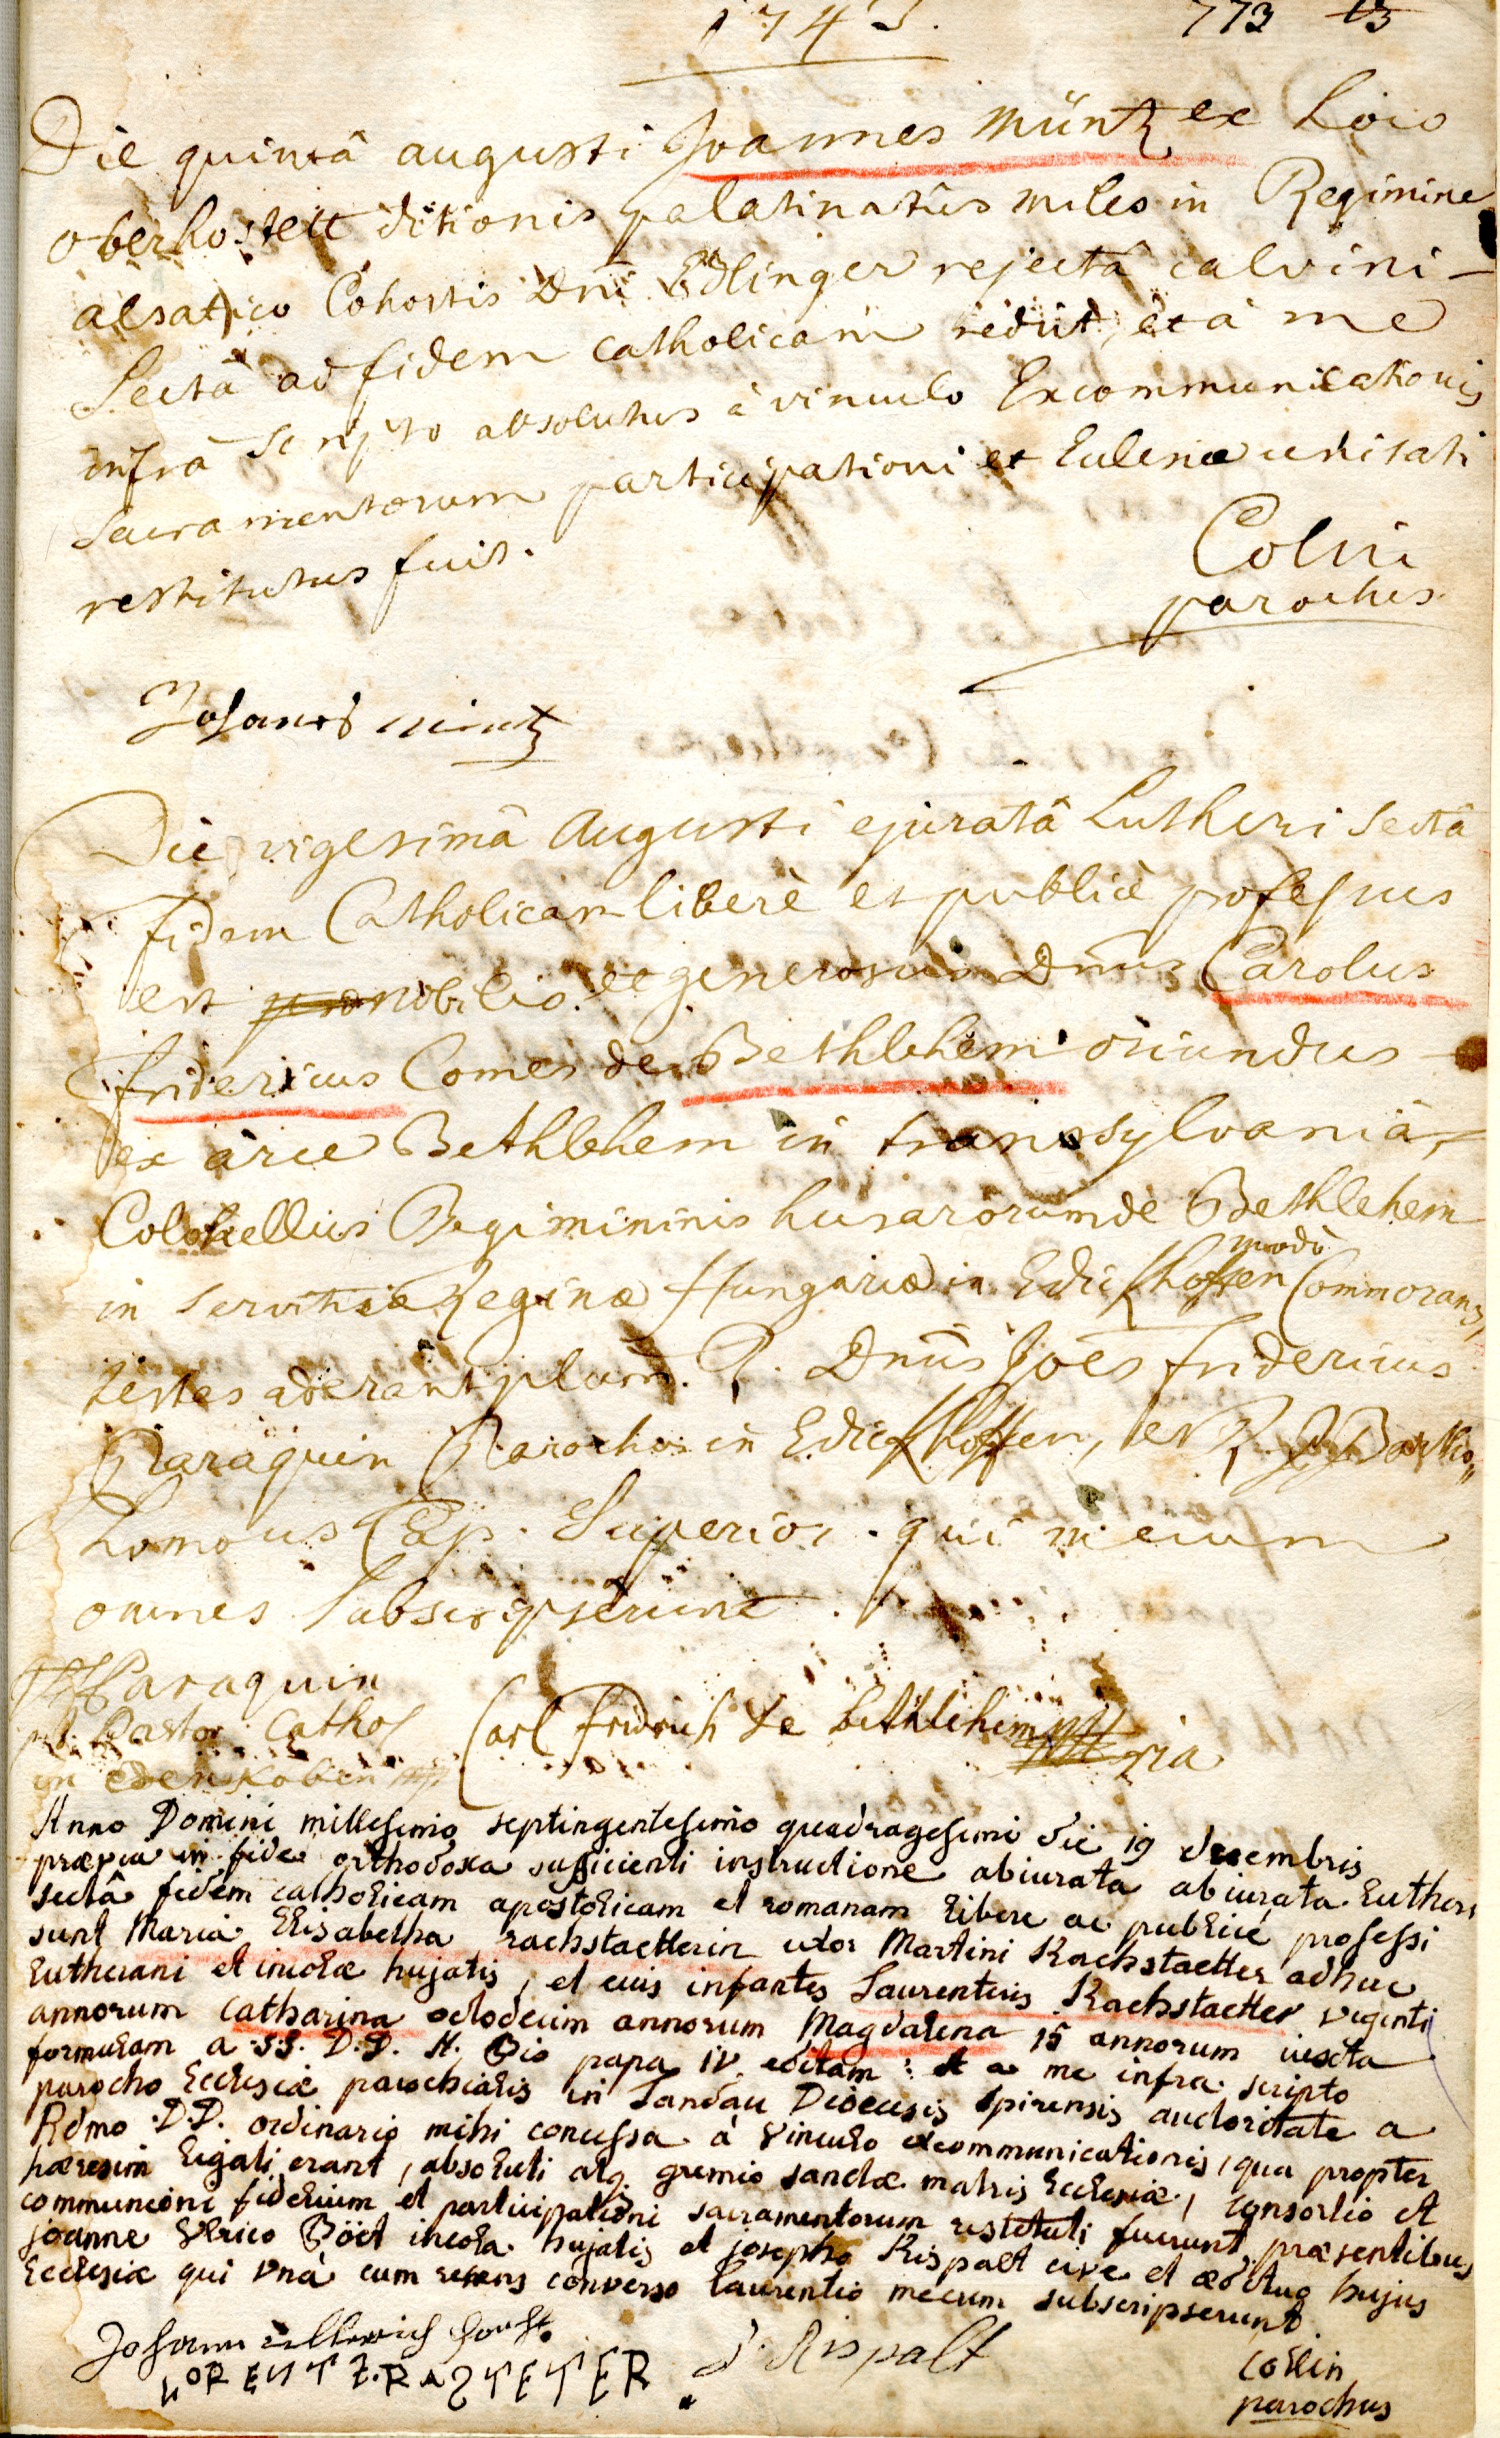 1743. 773 13
Die quintâ augusti Joannes Müntz ex Loco
oberhostett ditionis palatinatûs miles in Regimine
alsatico Cohortis Dni Edlinger rejectâ calvini
Sectâ ad fidem catholicam rediit, et à me
infrà scripto absolutus à vinculo Excommunicationis
Sacramentorum participationi et Eclesiæ unitati
restitutus fuit.
Colin
parochus
Johanes müntz
Die vigesimâ Augusti ejuratâ Lutheri Sectâ
fidem Catholicam liberè et publicè professus
est nobilis et generosus Dnus Carolus
fridericus Comes de Bethlehem oriundus
ex arce Bethlehem in transsylvaniâ,
Colonellus Regimininis husarorum de Bethlehem
in servitiis Reginæ Hungariæ in Edickhoffen modò Commorans,
testes aderant plurm. R. Dnus Joes fridericus
Paraquin Parochus in Edickhoffen, et R. P. Bartho„
lomæus Cap. Superior. qui mecum
omnes Subscripserunt.
Paraquin
Pastor Cathol
in edenkoben
Carl fridrich de bethlehem
Anno Domini millesimo septingentesimo quadragesimo die 19 decembris
prævia in fide orthodoxa sufficienti instructione abiurata abiurata Lutheri
sectâ fidem catholicam apostolicam et romanam libere ac publicè professi
sunt Maria Elisabetha rachstaetterin uxor Martini Rachstaetter adhuc
Lutherani et incolæ hujatis, et eius infantes Laurentius Rachstaetter viginti
annorum catharina octodecim annorum Magdalena 15 annorum iuxta
formulam a SS. D.D. N. Pio papa IV editam: et a me infra scripto
parocho Ecclesiæ parochialis in Landau Diœcesis spirensis auctoritate a
Rdmo D.D. ordinario mihi concessa à vinculo excommunicationis, qua propter
hæresim ligati erant, absoluti atq. gremio sanctæ matris Ecclesiæ, consortio et
communioni fidelium et participationi sacramentorum restituti fuerunt, præsentibus
joanne Ulrico Böct incola hujatis et josepho Rispalt cive et ædituo hujus
Ecclesiæ qui unà cum recens converso Laurentio mecum subscripserunt.
Johann
LORENTZ RASTETER
J. Rispalt
collin
parochus